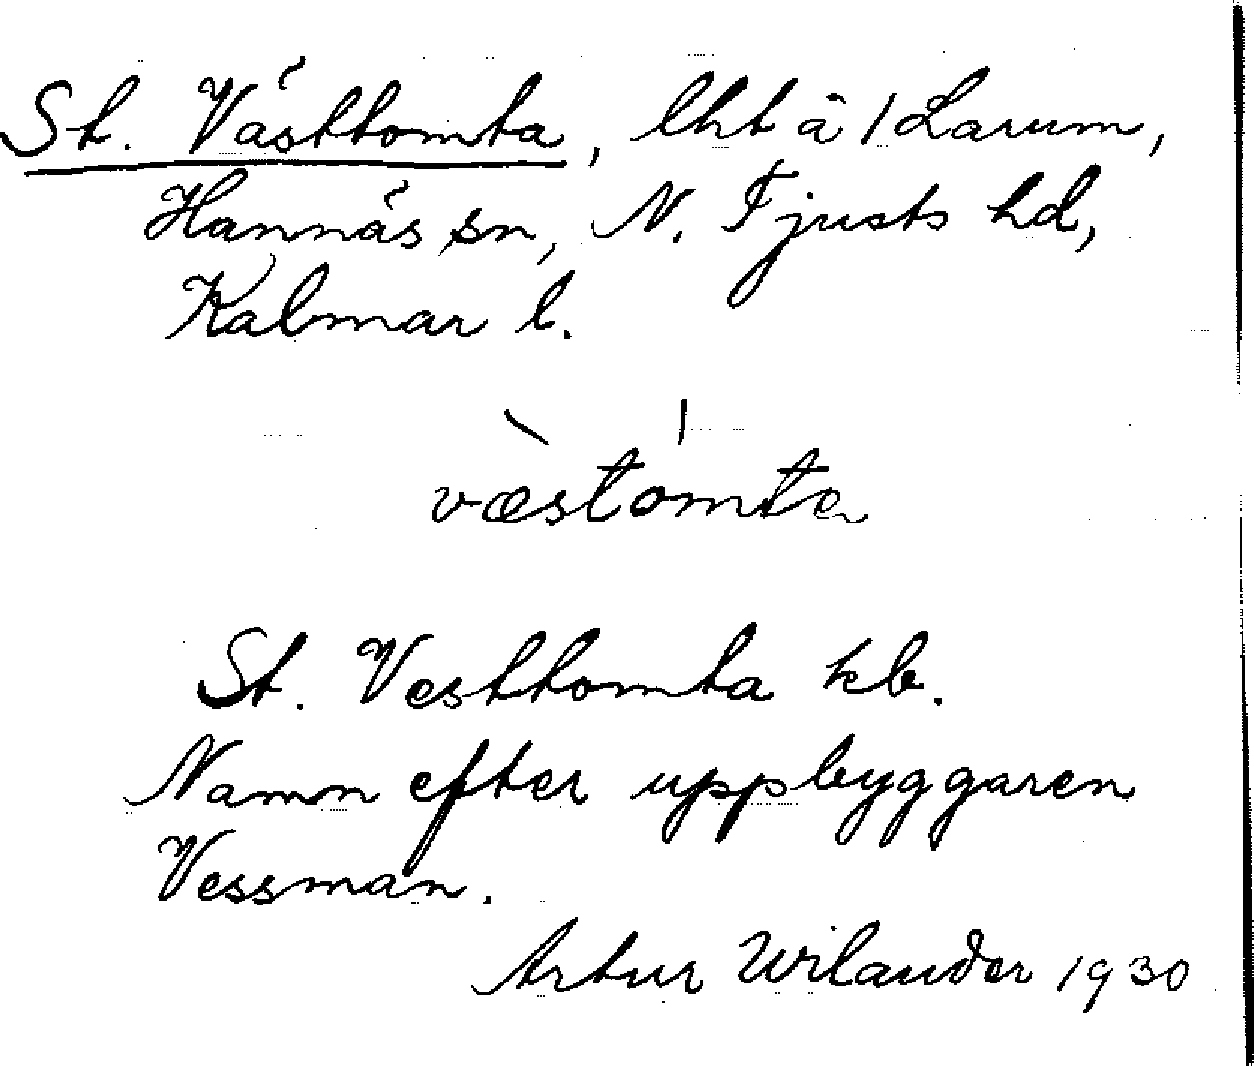 St. Västtomta, lht å 1 Larum,
Hannäs sn, N. Tjusts hd,
Kalmar l.
væ̀stómta
St. Vesttomta kb.
Namn efter uppbyggaren
Vessman.
Artur Wilander 1930